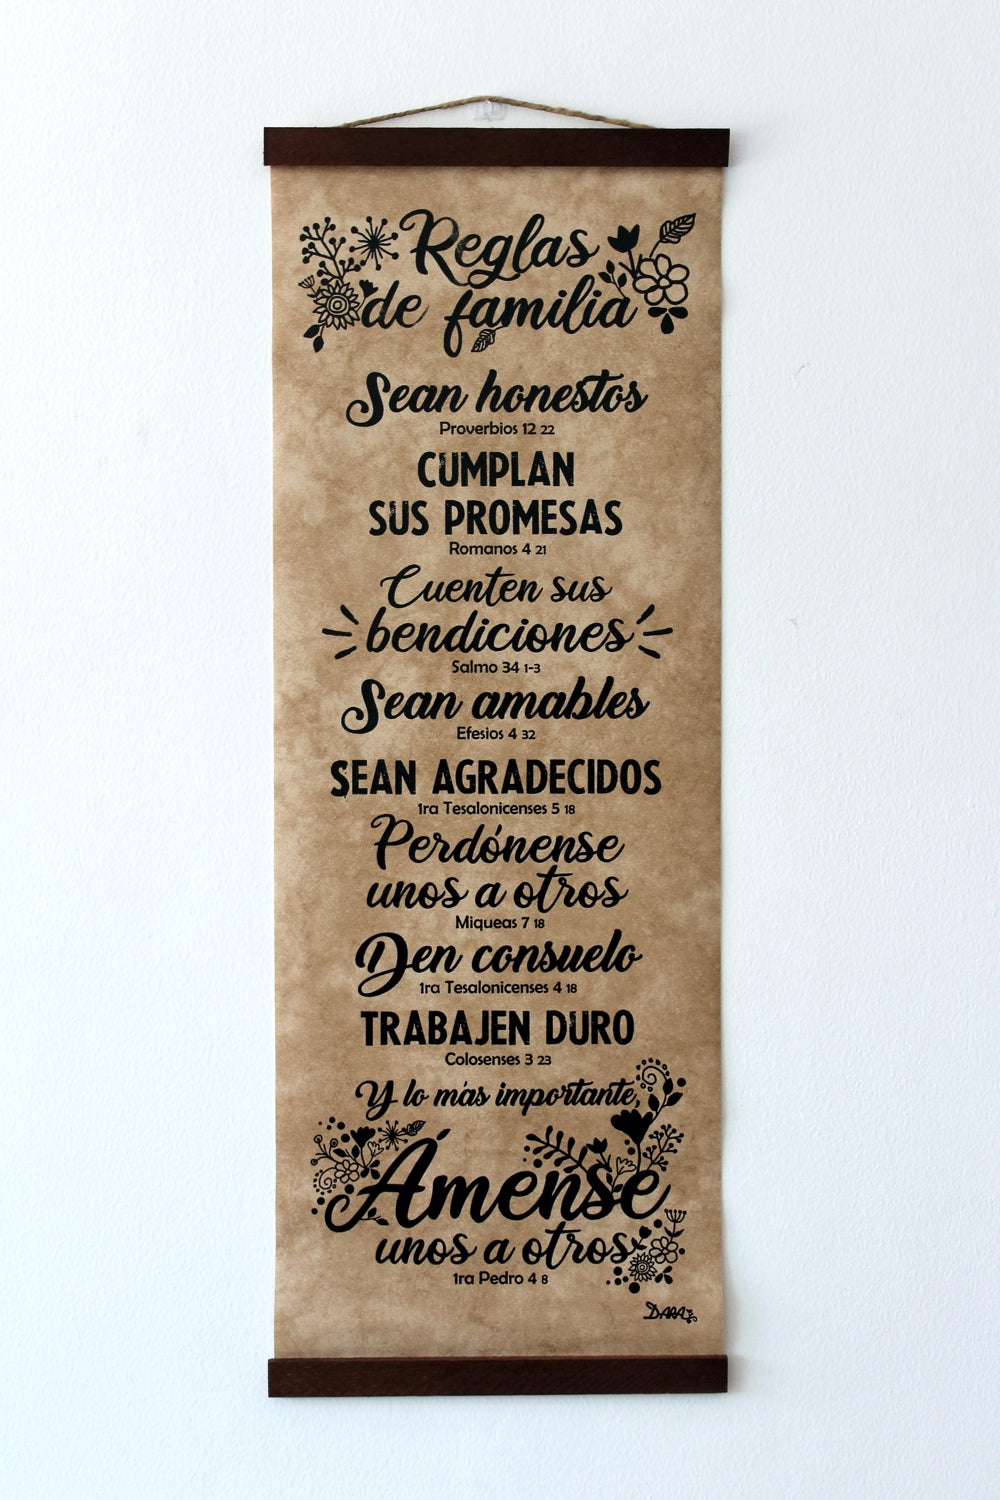 Reglas
de familia
Sean honestos
Proverbios 12 22
CUMPLAN
SUS PROMESAS
Romanos 4 21
Cuenten sus
bendiciones
Salmo 34 1-3
Sean amables
Efesios 4 32
SEAN AGRADECIDOS
1ra Tesalonicenses 5 18
Perdónense
unos a otros
Miqueas 7 18
Den consuelo
1ra Tesalonicenses 4 18
TRABAJEN DURO
Colosenses 3 23
Y lo más importante,
Ámense
unos a otros
1ra Pedro 4 8